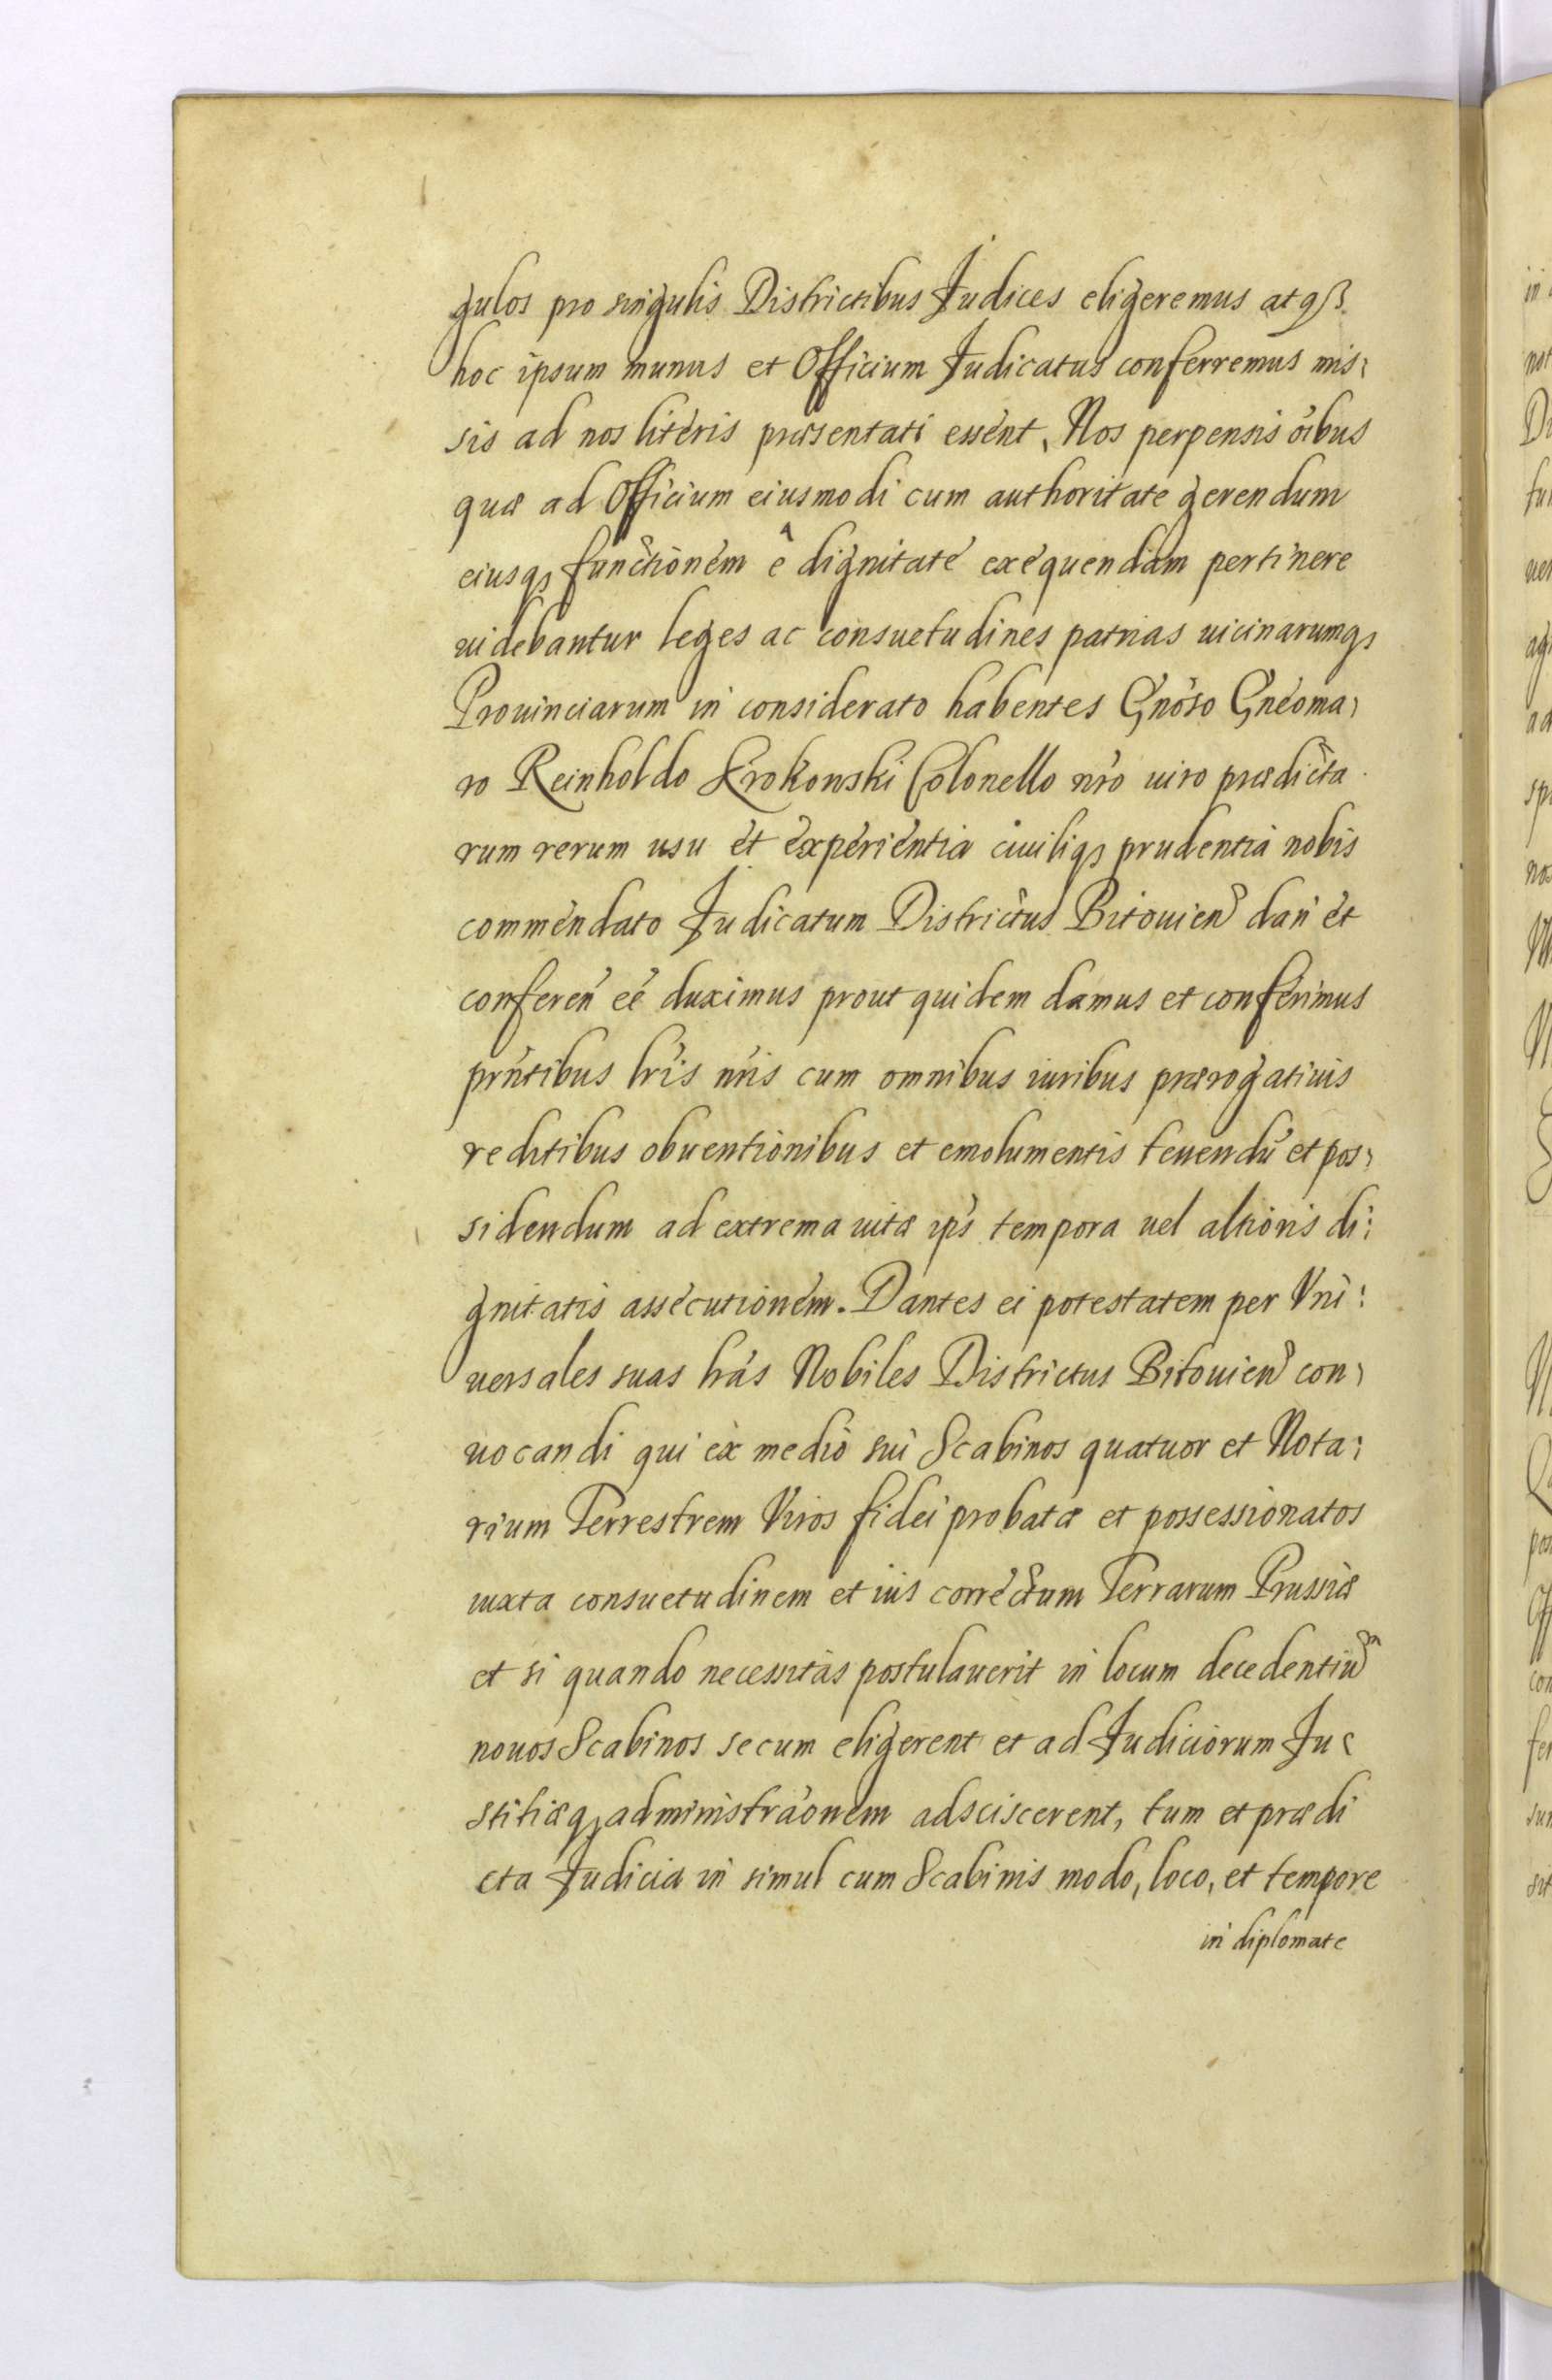 gulos pro singulis Districtibus Judices eligeremus atqß
hoc ipsum munus et Officium Judicatus conferremus mis:
sis ad nos literis præsentati essent, Nos perpensis oībus
quæ ad Officium eiusmodi cum authoritate gerendum
eiusqȝ functionem ê dignitate exequendam pertinere
uidebantur leges ac consuetudines patrias uicinarumqȝ
Prouinciarum in considerato habentes Gnoso Gneoma:
ro Reinholdo Krokowski Colonello nr̄o uiro prædicta
rum rerum usu et experientia ciuiliqȝ prudentia nobis
commendato Judicatum Districtus Bitouien̄ dan̄ et
conferen̄ eē duximus prout quidem damus et conferimus
prn̄tibus lr̄is nr̄is cum omnibus iuribus prærogatiuis
reditibus obuentionibus et emolumentis tenendū et pos:
sidendum ad extrema uitæ ips̄ tempora uel altioris di:
gnitatis assecutionem. Dantes ei potestatem per Vni:
uersales suas lr̄as Nobiles Districtus Bitouien̄ con:
uocandi qui ex medio sui Scabinos quatuor et Nota:
rium Terrestrem Viros fidei probatæ et possessionatos
iuxta consuetudinem et ius correctum Terrarum Prussiæ
et si quando necessitas postulauerit in locum decedentiū
nouos Scabinos secum eligerent et ad Judiciorum Ju:
stitiæqȝ administrāonem adsciscerent, tum et prædi
cta Judicia in simul cum Scabinis modo, loco, et tempore
in diplomate